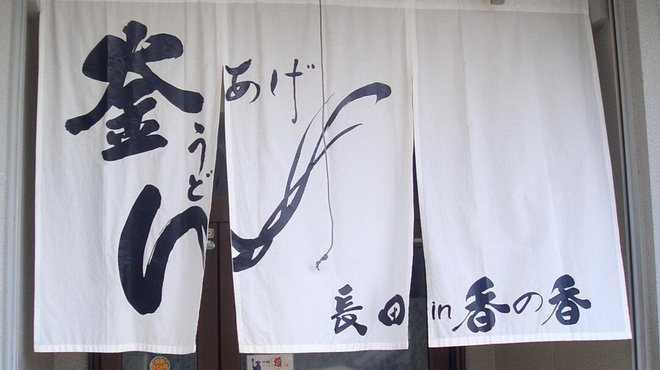 釜あげ
うどん
長田 in 香の香